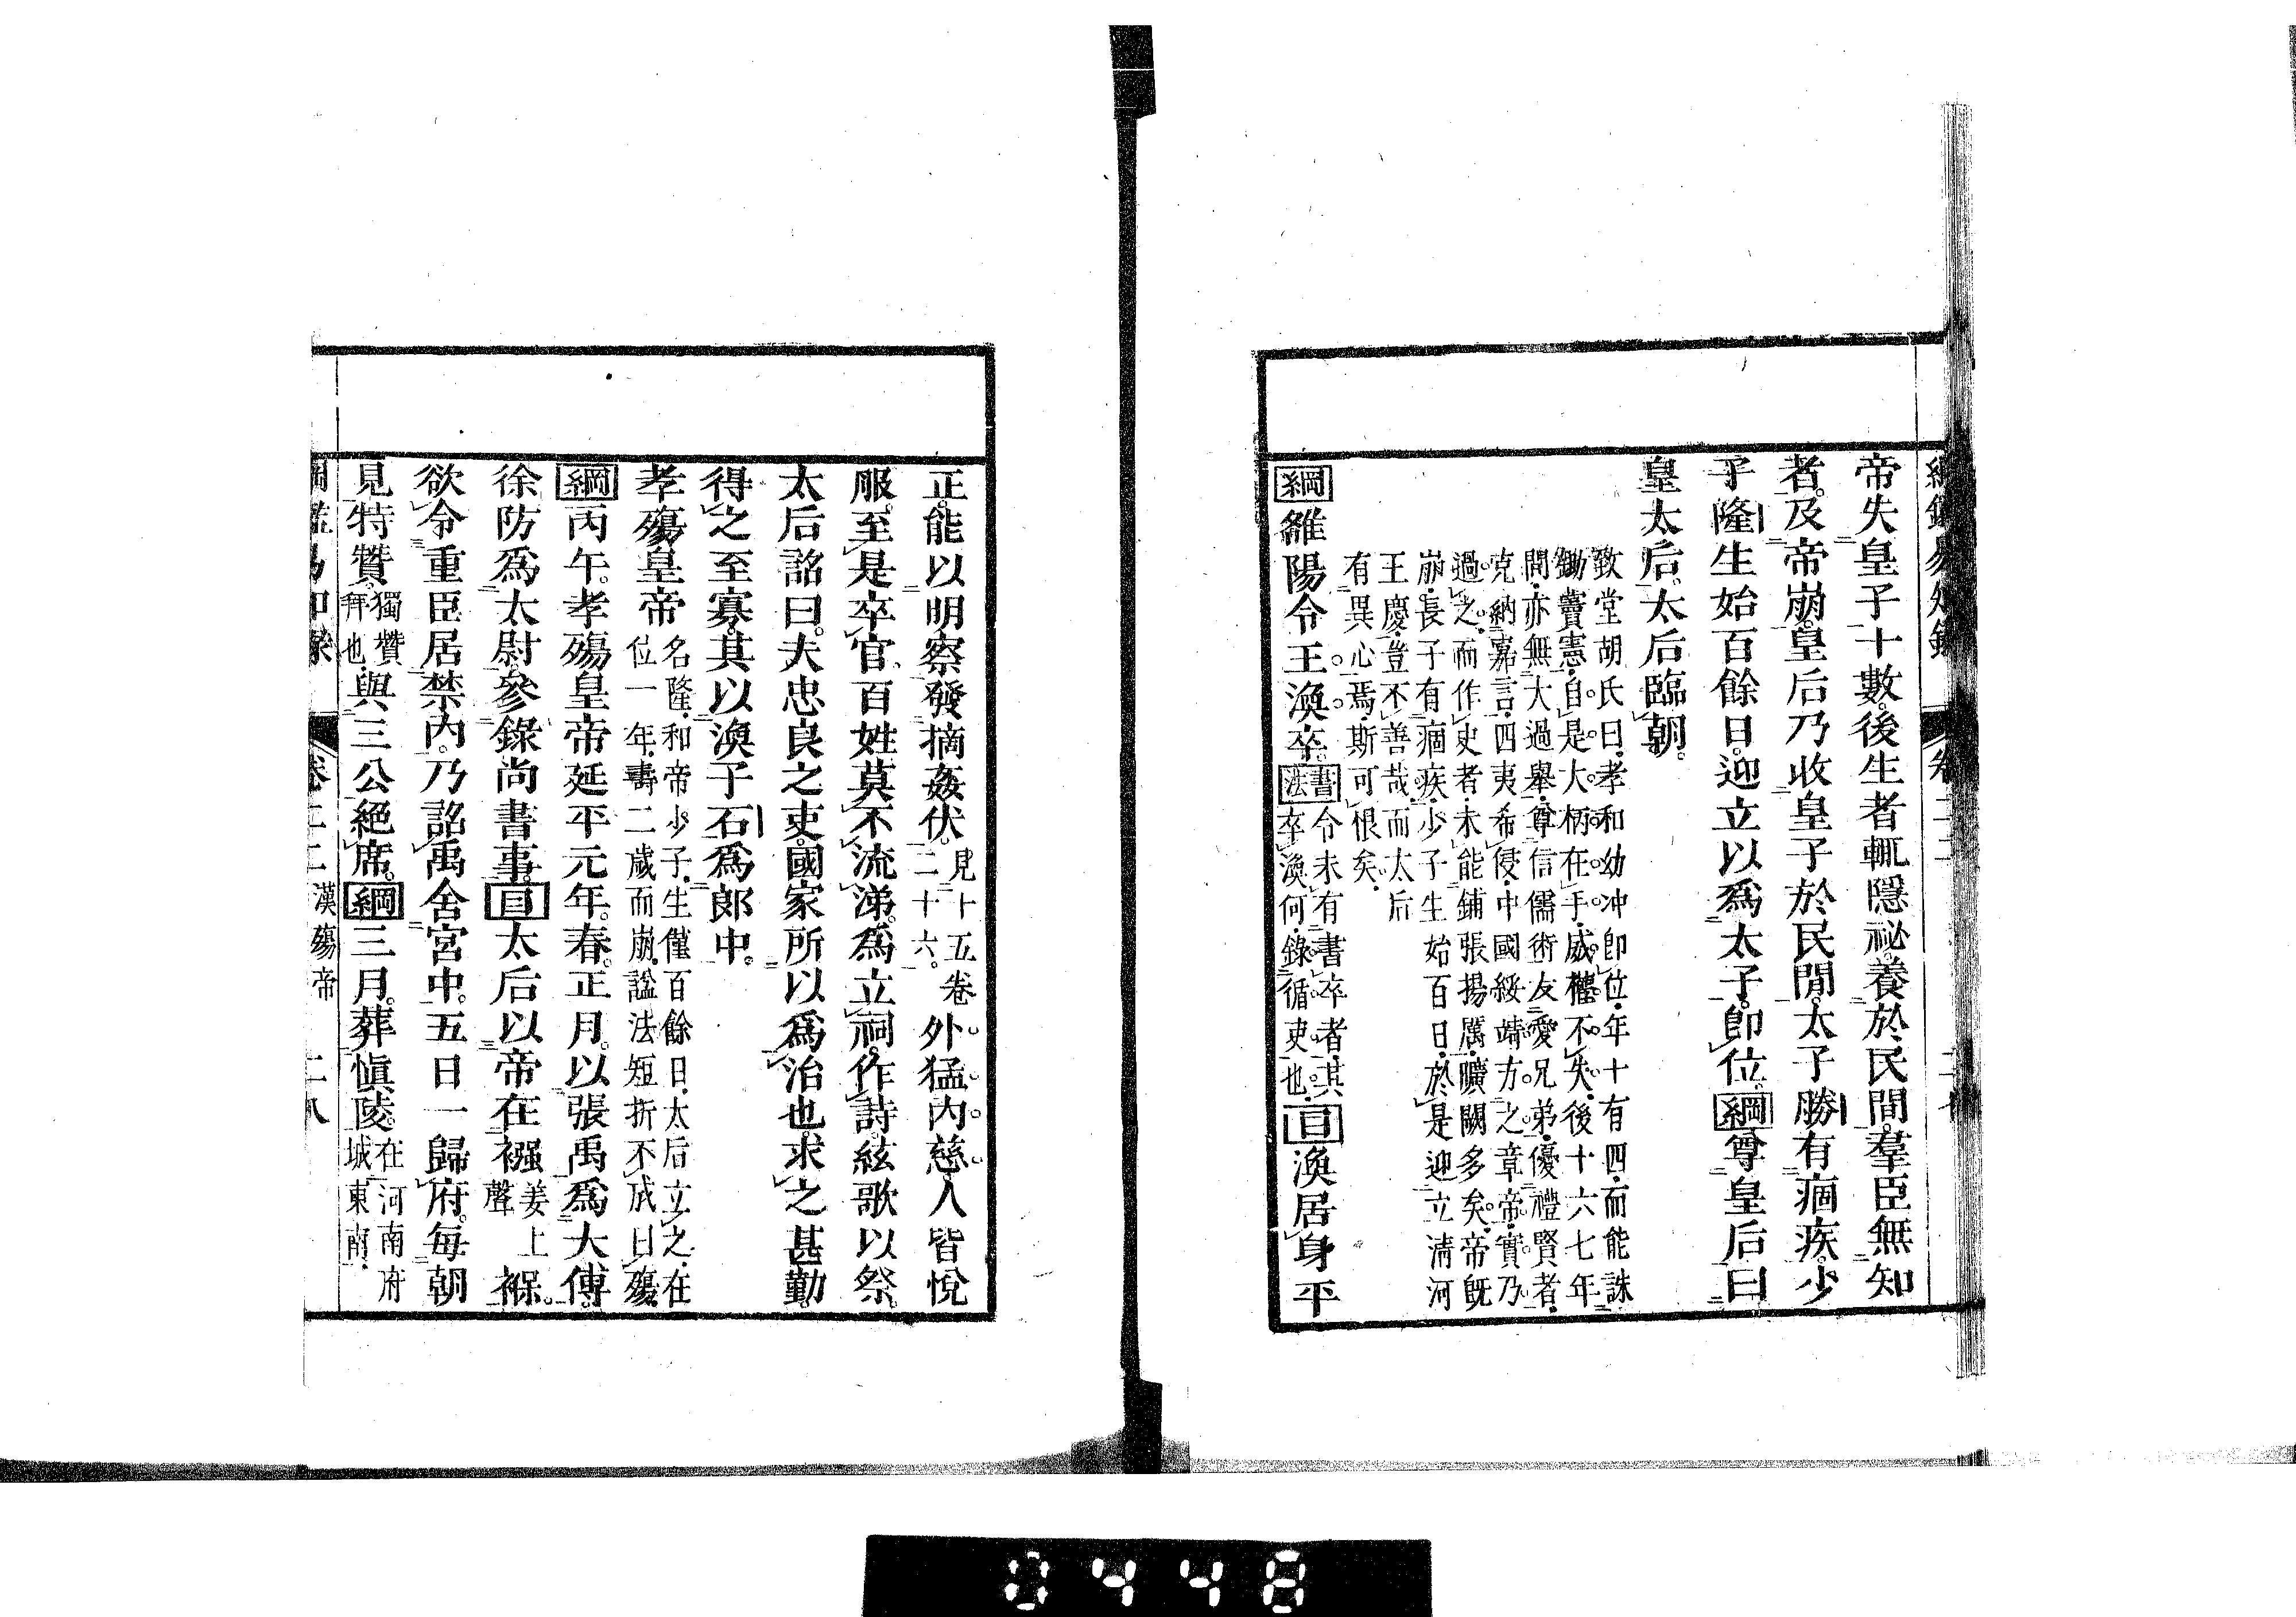 帝失皇子十數後生者輒隱祕養於民間羣臣無知
者及帝崩皇后乃收皇子於民閒太子勝有痼疾少
子隆生始百餘日迎立以爲太子卽位綱尊皇后曰
皇太后太后臨朝
致堂胡氏曰孝和幼冲卽位年十有四而能誅
鋤竇憲自是大柄在手威權不失後十六七年
間亦無大過舉尊信儒術友愛兄弟優禮賢者
克納嘉言四夷希侵中國綏靖方之章帝實乃
過之而作史者未能鋪張揚厲曠闕多矣帝旣
崩長子有痼疾少子生始百日於是迎立淸河
王慶豈不善哉而太后
有異心焉斯可恨矣
綱雒陽令王渙卒書法令未有書卒者其卒渙何錄循吏也目渙居身平
正能以明察發摘姦伏見十五卷二十六外猛内慈人皆悅
服至是卒官百姓莫不流涕爲立祠作詩絃歌以祭
太后詔曰夫忠良之吏國家所以爲治也求之甚勤
得之至寡其以渙子石爲郎中
孝殤皇帝名隆和帝少子生僅百餘日太后立之在位一年壽二歲而崩諡法短折不成曰殤
綱丙午孝殤皇帝延平元年春正月以張禹爲大傅
徐防爲太尉參錄尚書事目太后以帝在襁姜上聲褓
欲令重臣居禁内乃詔禹舍宮中五日一歸府每朝
見特贊獨贊拜也與三公絕席綱三月葬愼陵在河南府城東南
卷二二 漢殤帝 二八
0448